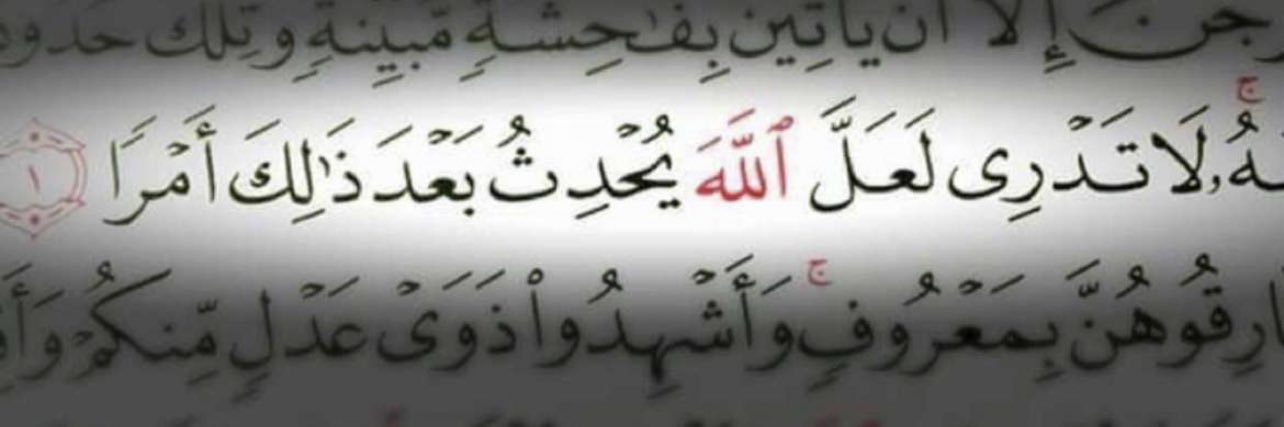 إِلَّا أَن يَأْتِينَ بِفَٰحِشَةٍ مُّبَيِّنَةٍ وَتِلْكَ حُدُودُ
لَا تَدْرِى لَعَلَّ ٱللَّهَ يُحْدِثُ بَعْدَ ذَٰلِكَ أَمْرًا ١
بِمَعْرُوفٍ ۚ وَأَشْهِدُوا۟ ذَوَىْ عَدْلٍ مِّنكُمْ